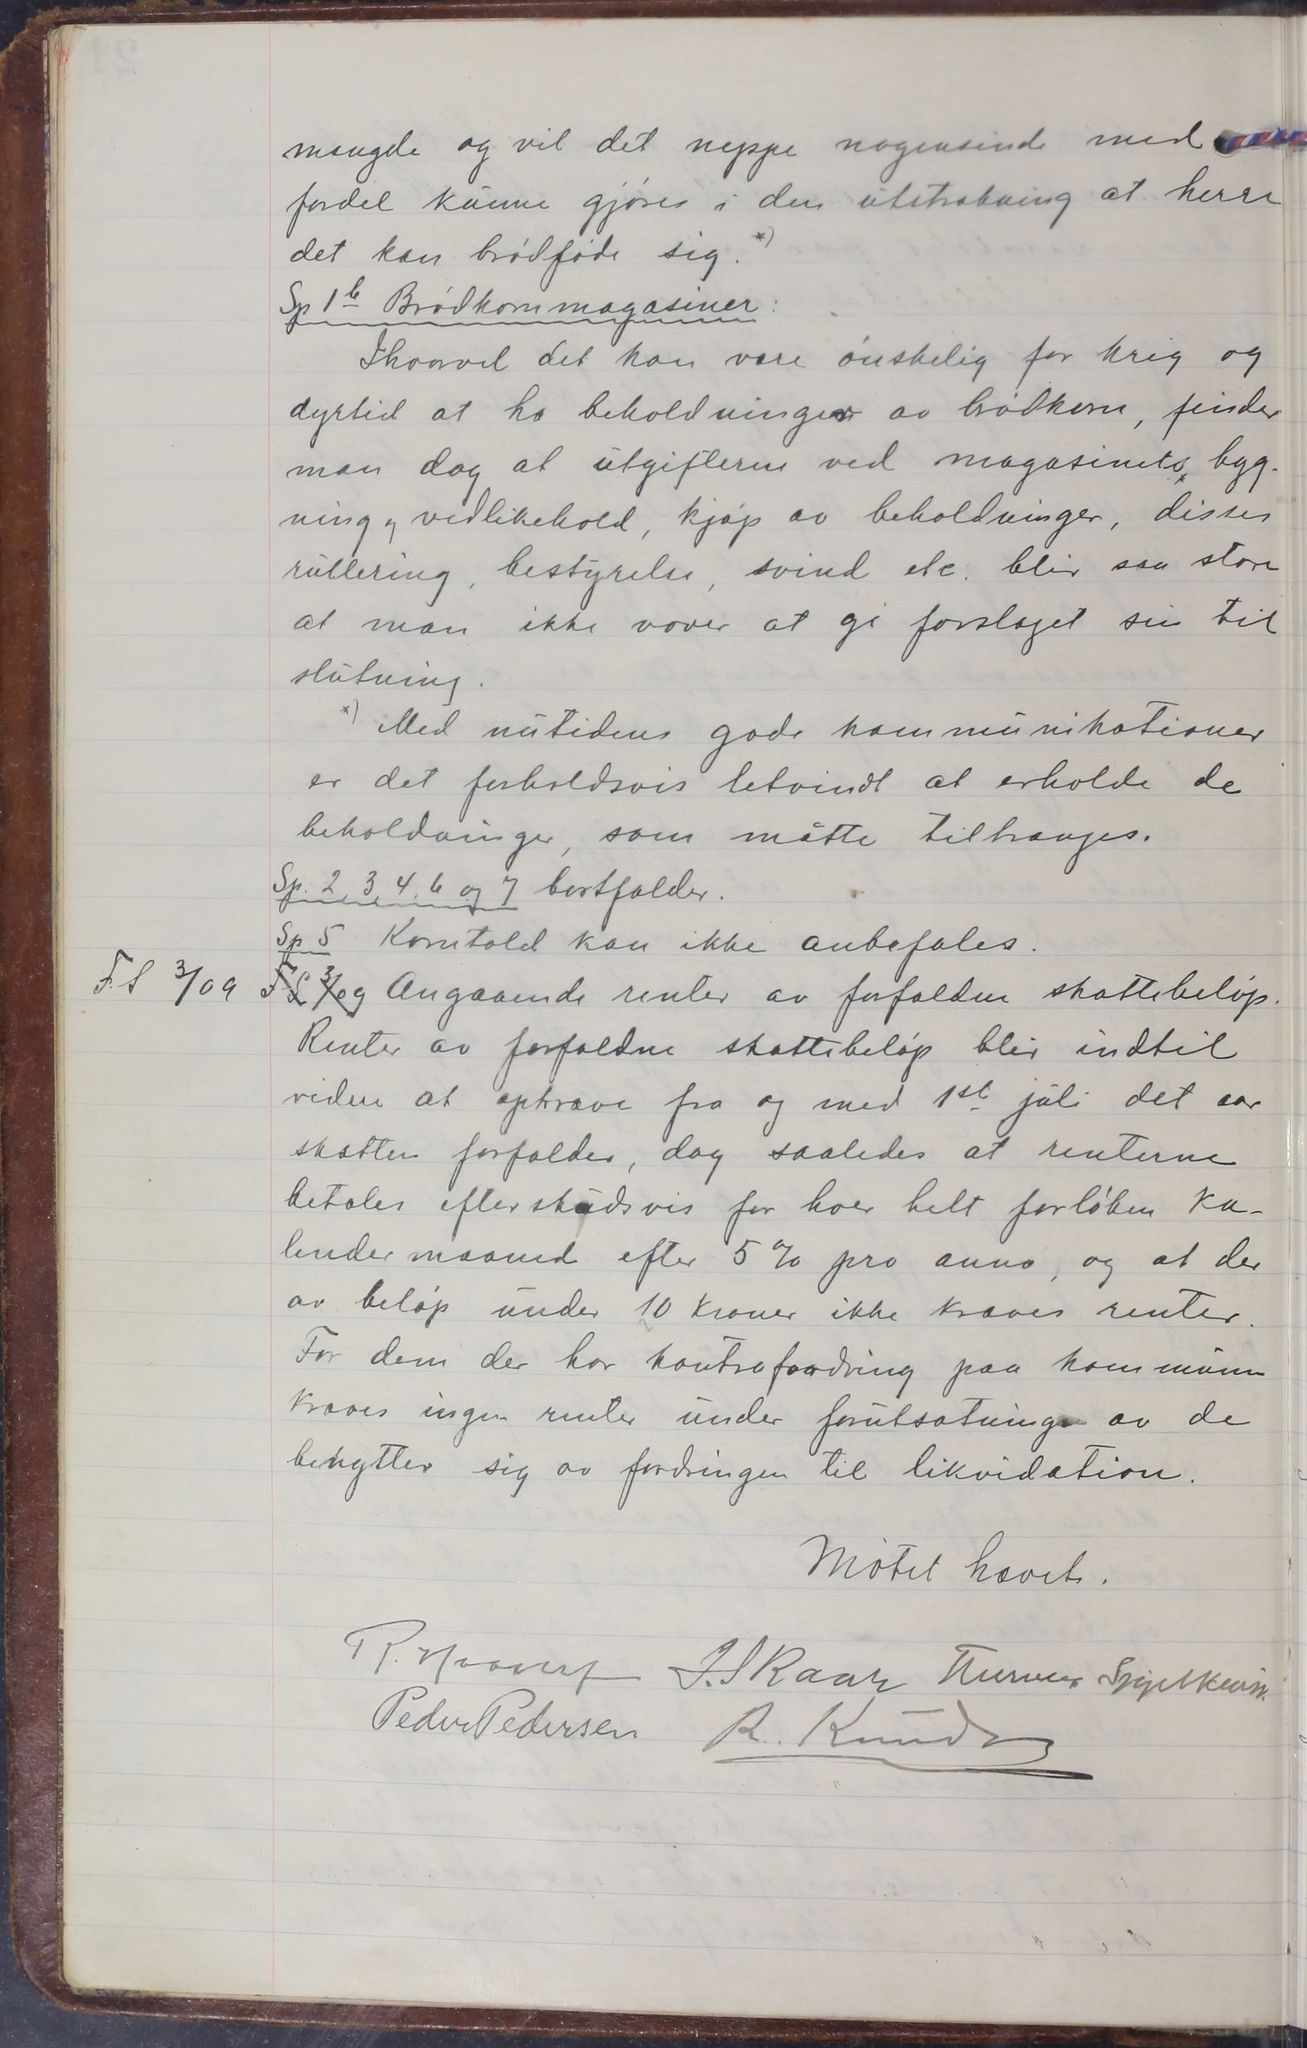 mængde og vil det neppe nogensinde med
fordel kunne gjøres i den utstrækning at herre
det kan brødføde sig. *)
Sp 1 b Brødkornmagasiner:
Ihvorvel det kan være ønskelig før krig og
dyrtid at ha beholdninger av brødkorn, finder
man dog at utgifterne ved magasinets byg-
ning og vedlikehold, kjøp av beholdninger, disses
rullering, bestyrelse, svind etc. blir saa store
at man ikke vover at gi forslaget sin til
slutning.
*) Med nutidens gode kommunikationer
er det forholdsvis letvindt at erholde de
beholdninger, som måtte tiltrænges.
Sp. 2, 3, 4, 6 og 7 bortfalder.
Sp 5 Korntold kan ikke anbefales.
F.S 3/09 FS 3/09 Angaaende renter av forfaldne skattebeløp.
Renter av forfaldne skattebeløp blir indtil
videre at opkræve fra og med 1st juli det aar
skatten forfalder, dog saaledes at renterne
betales efterskudsvis for hver helt forløben ka-
lendermaaned efter 5 % pro anno, og at der
av beløp under 10 kroner ikke kræves renter.
For dem der har kontrafordring paa kommunen
kræves ingen renter under forutsætning av de
benytter sig av fordringen til likvidation.
Møtet hævet.
J. S Raary
Peder Pedersen R. Knudsen